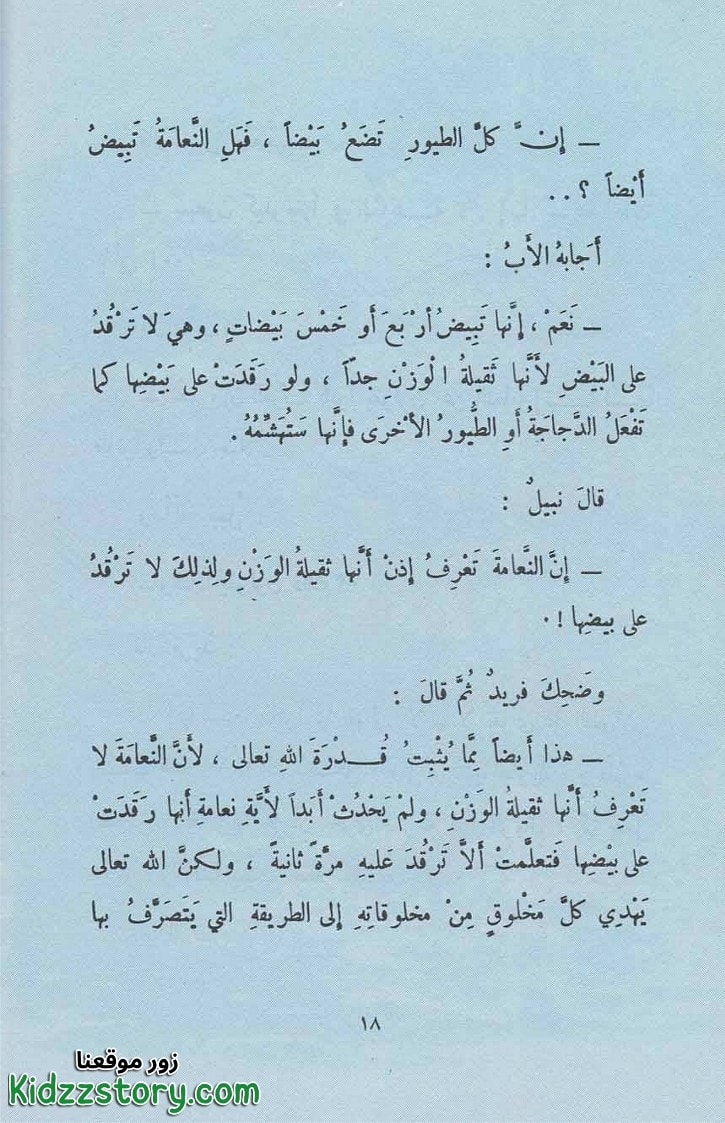 ــ إِنَّ كلَّ الطيورِ تَضَعُ بَيْضاً ، فَهَلِ النَّعامَةُ تَبِيضُ
أَيْضاً ؟ ..
أَجابهُ الأَبُ :
ــ نَعَمْ ، إِنَّها تَبِيضُ أَرْبَعَ أَو خَمْسَ بَيْضاتٍ ، وهيَ لا تَرْقُدُ
على البَيْضِ لأَنَّها ثَقيلةُ الْوَزْنِ جدّاً ، ولو رَقَدَتْ على بَيْضِها كما
تَفْعَلُ الدَّجاجَةُ أَوِ الطُّيورُ الأُخْرَى فإِنَّها سَتُهَشِّمُهُ .
قالَ نبيلٌ :
ــ إِنَّ النَّعامةَ تَعْرِفُ إِذنْ أَنَّها ثقيلةُ الوَزْنِ ولِذلِكَ لا تَرْقُدُ
على بيضِها ! .
وضَحِكَ فريدٌ ثُمَّ قالَ :
ــ هذا أَيضاً مِمَّا يُثْبِتُ قُــدْرَةَ اللهِ تعالى ، لأَنَّ النَّعامَةَ لا
تَعْرِفُ أَنَّها ثقيلةُ الوَزْنِ ، ولمْ يَحْدُثْ أَبداً لأَيَّةِ نعامةٍ أَنها رَقَدَتْ
على بيْضِها فَتعلَّمتْ أَلاَّ تَرْقُدَ عَليهِ مرَّةً ثانيةً ، ولكنَّ الله تعالى
يَهْدِي كلَّ مَخْلوقٍ مِنْ مخلوقاتِهِ إِلى الطريقةِ التي يَتَصَرَّفُ بها
١٨
زور موقعنا
Kidzzstory.com